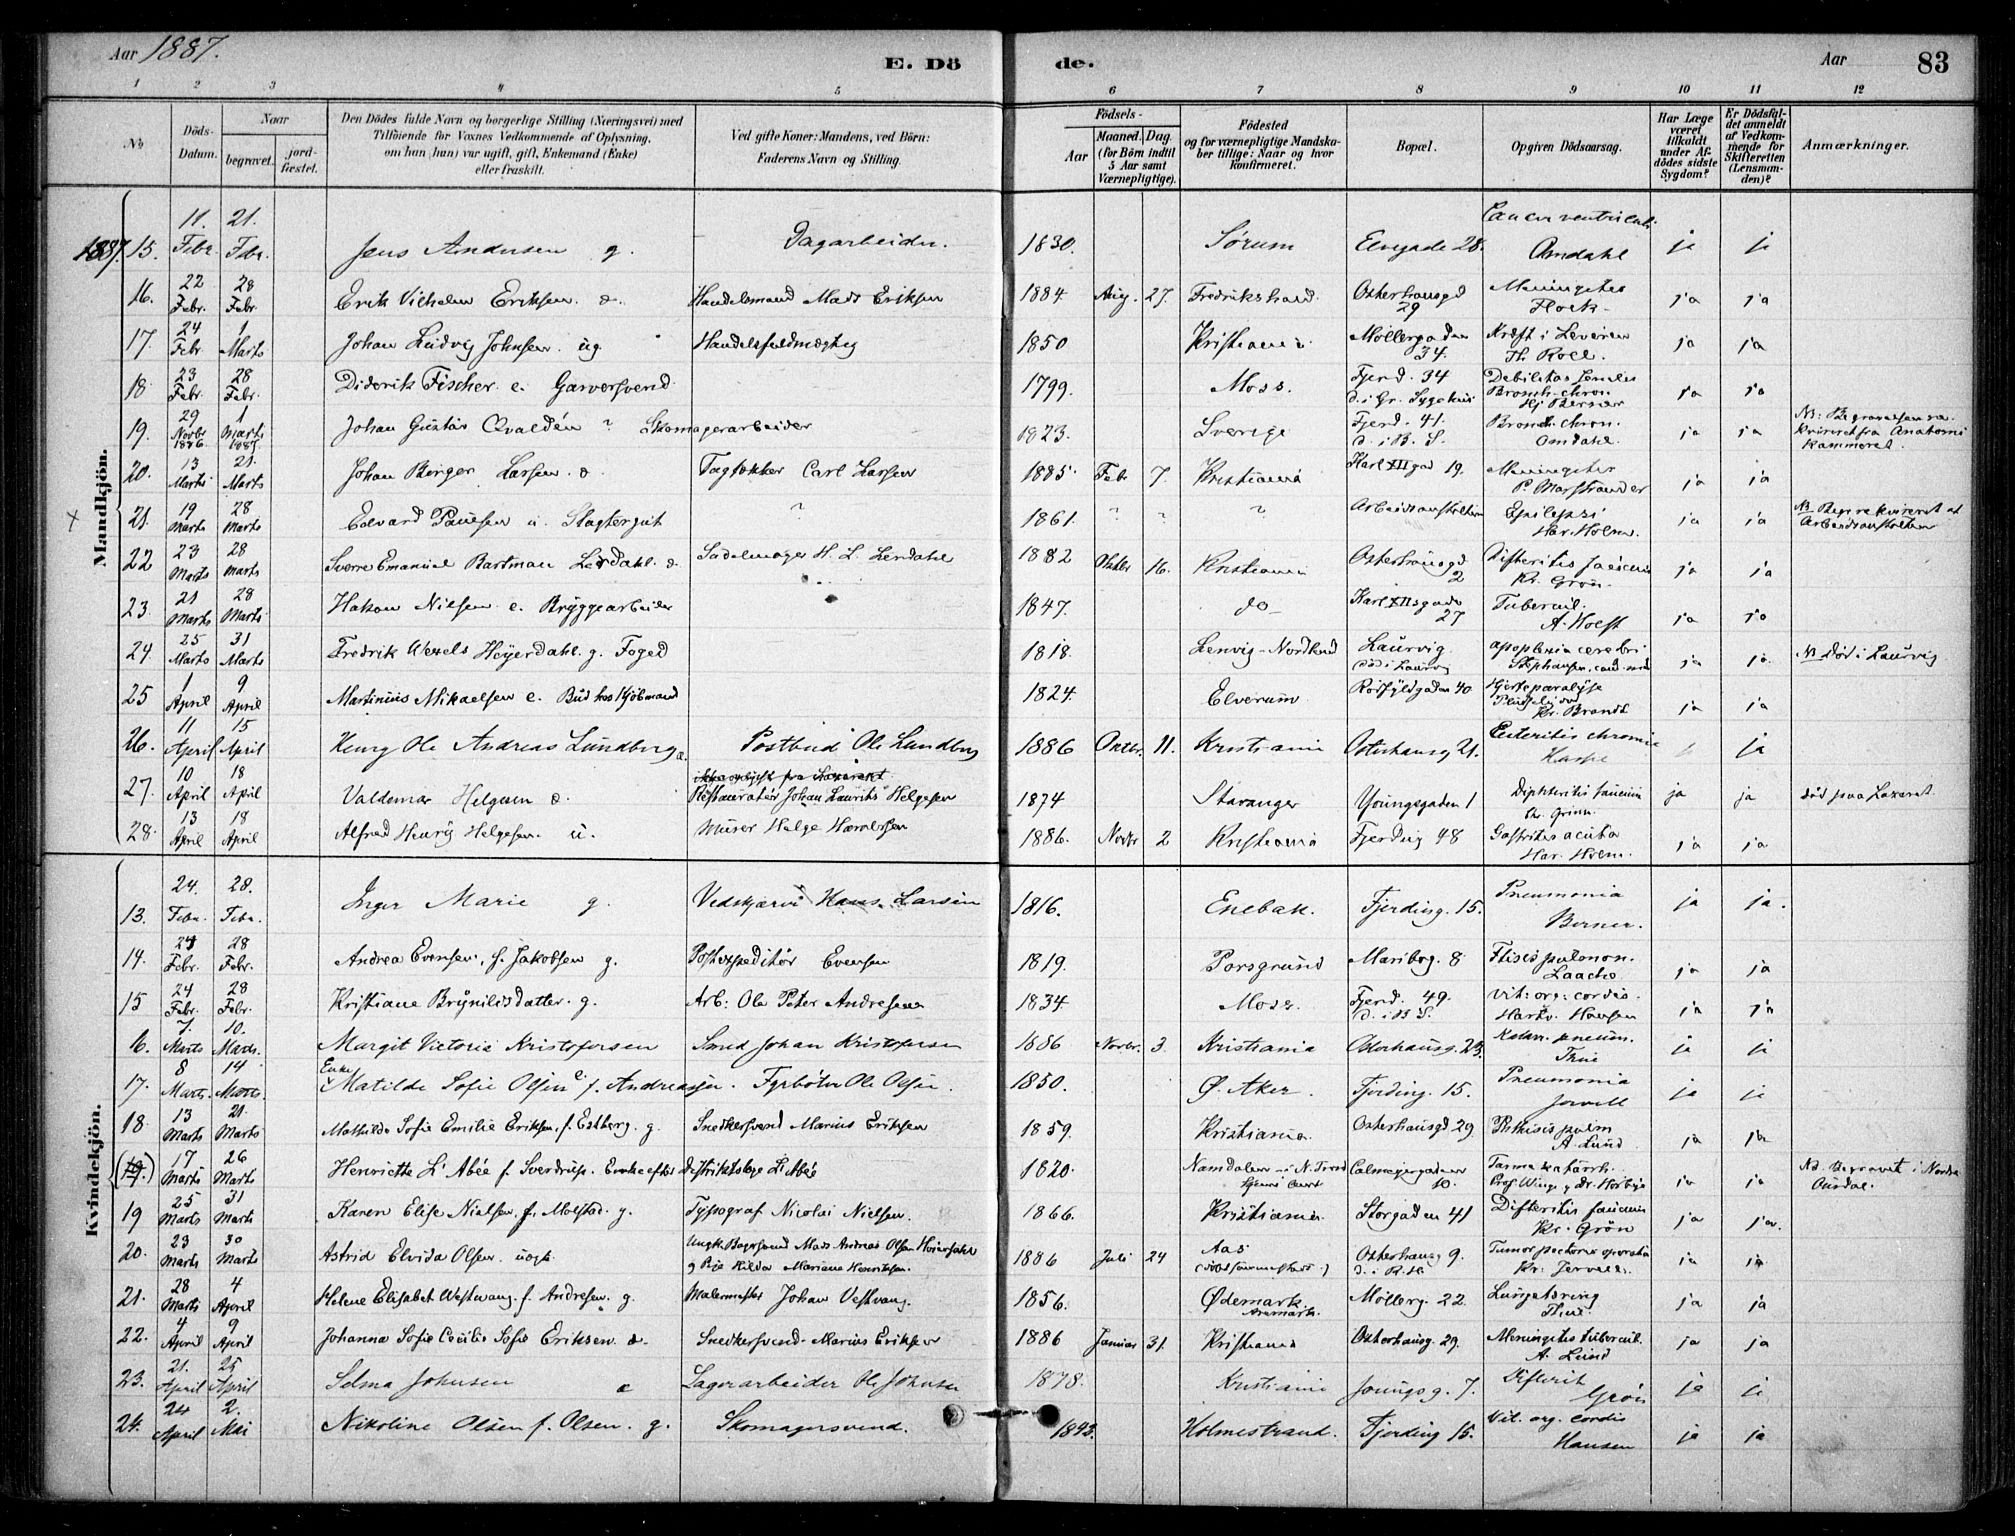 Aar 1887.
E. Dö de.
Aar 83
1 2 3 4 5 6 7 8 9 10 11 12
No
Döds-Datum.
Naar
begravet.
jordfæstet.
Den Dödes fulde Navn og borgerlige Stilling (Næringsvei) med Tilföiende for Voxnes Vedkommende af Oplysning, om han (hun) var ugift, gift, Enkemand (Enke) eller fraskilt.
Ved gifte Koner: Mandens, ved Börn: Faderens Navn og Stilling.
Födsels-
Aar
Maaned. Dag.
(for Börn indtil 5 Aar samt Værnepligtige).
Födested
og for værnepligtige Mandskaber tillige: Naar og hvor konfirmeret.
Bopæl.
Opgiven Dödsaarsag.
Har Læge været tilkaldt under Afdödes sidste Sygdom?
Er Dödsfaldet anmeldt af Vedkommende for Skifteretten (Lensmanden)?
Anmærkninger.
Mandkjön.
1887. 15. 11. Febr. 21. Febr. Jens Andersen g. Dagarbeider. 1830. Sørum Elvegade 28. Cancer ventriculi Omdahl ja ja
16. 22 Febr. 28 Febr. Erik Vilhelm Eriksen Handelsmand Mads Eriksen 1884. Aug. 27. Fredrikshald. Osterhausgd 29 Meningites ja ja
17. 24 Febr 1 Marts Johan Ludvig Johnsen ug. Handelsfuldmægtig 1850 Kristiania Møllergaden 34. Kræft i Leveren Th. Roll. ja ja
18. 23 Febr. 28 Febr. Diderik Fischer. e. Garversvend 1799. Moss. Fjerd. 34 D. i Gr. Sygehus Debilitas senilis Bronch. chron Hj Berner ja ja
19. 29 Novbr 1886. 1 Marts Johan Gustav Qvaldén ? Skomagerarbeider 1823. Sverige Fjerd. 41. D. i B. S. Bronch. chron. Omdahl. ja ja NB. Begravelsen re-kvireret fra Anatomi kammeret.
20. 13 Marts 21. Marts Johan Berger Larsen Tagtækker Carl Larsen 1885 Febr 7. Kristiania Karl XII gad 19. Meningites P. Marstrander ja ja
21. 19 Marts 28 Marts Edvard Paulsen u. Slagtergut ? 1861. ? ? ? Arbeidsanstalten Epilepsi Har. Holm. ja ja NB Begr. rekvireret af Arbeidsanstalten
22 23 Marts 28 Marts Sverre Emanuel Bartman Lerdahl. Sadelmager H. L. Lerdahl 1882 Oktbr 16. Kristiania Osterhausgd 2 Difteritis faucium Kr. Grøn. ja ja
23. 21 Marts 28 Marts Hakon Nielsen e. Bryggearbeider 1847. do Karl XIIsgade 27 Tubercul. A. Holst ja ja
24. 25 Marts 31 Marts Fredrik Wexels Heyerdahl. g. Foged 1818. Lenvig - Nordland Laurvig død i Laurvig apoplexia cerebri Stephansen, cand. med ja ja. NB død i Laurvig
25 1 April 9 April Martinius Mikaelsen e. Bud hos Kjøbmand 1824. Elverum Hjerteparalyse Kr. Brandt ja ja
26. 11 April 15 April Henry Ole Andreas Lundberg Postbud Ole Lundberg 1886 Oktbr. 11. Kristiania Osterhausg 21. Enteritis chronica ja
27. 10 April 18 April Valdemar Helgesen Restauratør Johan Laurits Helgesen 1874 Stavanger Youngsgaden 1 Diphteritis faucium ja ja død paa Lazaret.
28. 13 April 18 April Alfred Henry Helgesen. u. Murer Helge Haraldsen 1886. Novbr 2 Kristiania Fjerding 48 Gastritis acuta Har. Holm. ja ja
Kvindekjön.
13. 24. Febr. 28. Febr. Inger Marie g. Vedskjærer Hans Larsen 1816. Enebak. Fjerding. 15. Pneumonia Berner. ja ja.
14. Febr. 28 Febr. Andrea Evensen, f. Jakobsen g. Postexpeditør Evensen 1819. Porsgrund Maribog. 8 Ftisis pulmon. Laache ja ja
15 24 Febr. 28 Febr. Kristiane Brynildsdatter. g. Arb: Ole Peter Andresen 1834. Moss. Fjerd. 49. D. i B. S. Vit: org: cordis. Hartv. Hansen ja ja
16. 7. Marts 10. Marts. Margit Victoria Kristofersen Smed Johan Kristofersen 1886 Novbr. 3. Kristiania Osterhausg. 23. pneum. Thue ja ja
17. 8 Marts. 14 Marts. Enke Matilde Sofie Olsen f. Andreassen. Fyrbøter Ole Olsen. 1850. Ø. Aker. Fjerding. 15. Pneumonia Jervell ja ja
18 13 Marts 21. Marts Mathilde Sofie Emilie Eriksen, f. Estberg. g. Snedkersvend Marius Eriksen 1859. Kristiania. Osterhausgd 29. Phthisis pulm A. Lund ja ja
(19.) 17 Marts 26 Marts Henriette L'Abée f. Sverdrup. Enke efter distriktslæge L'Abée 1820. Namdalen - i N. Trond Calmeyergaden 10. Prof Winge g Dr. Horbye ja ja NB. Begravet i Nordre Aurdal.
19 25 Marts 31 Marts Karen Elise Nielsen, f. Molstad. g. Typograf Nicolai Nielsen. 1866. Kristiania. Storgaden 41 Difteritis faucium Kr. Grøn ja ja.
20. 23 Marts 30 Marts Astrid Elvida Olsen. uægte Ungk. Bagersvend Mads Andreas Olsen g Pige Hilda Mariane Henriksen. 1886 Juli 24 Aas Osterhausg 9. D. i R. H. Tumor pectoris operatio Kr. Jervell. ja ja
21. 28 Marts 4 April Helene Elisabet Westwang. f. Andresen. g. Malermester Johan Vestvang. 1856. Ødemark Aremark. Møllerg. 22. Lungetæring Thue. ja ja
22. 4 April 9 April Johanna Sofie Cecilie Sofie Eriksen Snedkersvend Marius Eriksen 1886 Januar 31. Kristiania Osterhausg. 29. Meningites tubercul. A. Lund ja ja
23. 21. April 25 April Selma Johnsen Lagerarbeider Ole Johnsen 1878. Kristiania Youngsg. 7. Difterit Grøn ja ja
24. 24 April 2. Mai Nikoline Olsen f. Olsen. g. Skomagersvend. 1843. Holmestrand. Fjerding 15. Vit. org. cordis Hansen ja ja